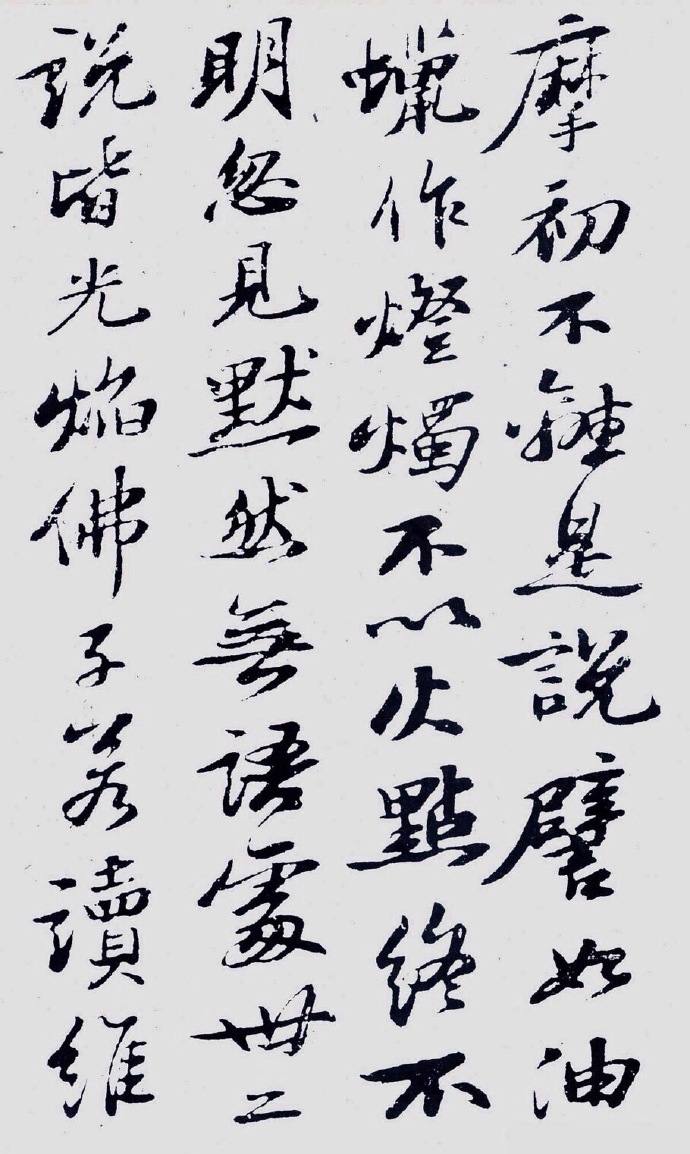 摩初不離是說譬如油
蠟作燈燭不以火點終不
明忽見默然無語處卅二
說皆光焰佛子若讀維